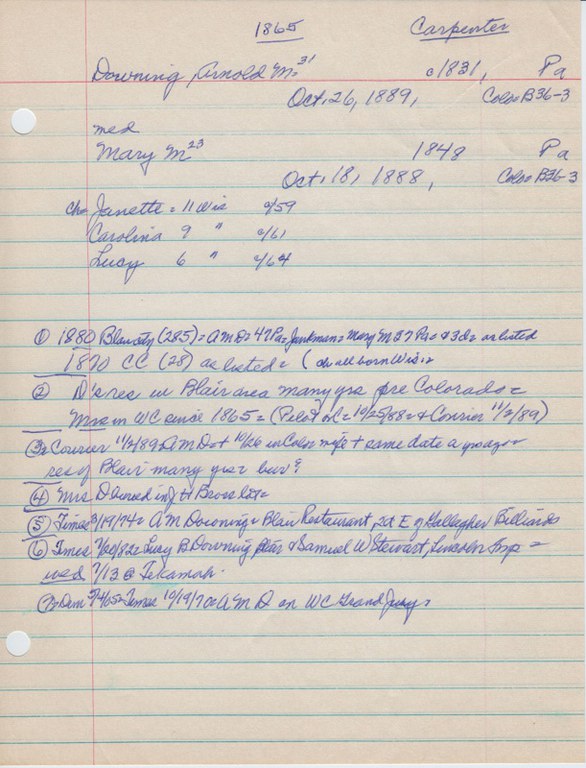 1865 Carpenter
Downing, Arnold M= 31 c1831, Pa
Oct. 26, 1889, Colo= B36-3
med
Mary M 23 1848 Pa
Oct. 18, 1888, Colo= B36-3
ch= Janette = 11 Wis c/59
Carolina 9 " c/61
Lucy 6 " c/64
① 1880 Blair cty (285) = A M D = 47 Pa = Junkman = Mary M 37 Pa = & 3d = as listed
1870 CC (28) as listed = ( ch all born Wis =
② D's res in Blair area many yrs pre Colorado =
Mrs in WC since 1865 = (Pilot = 10/25/88 = & Courier 11/2/89)
③ Courier 11/2/89 A M D 10/26 in Colo= + same date a yr ago =
res of Blair many yrs
④ Mrs D
⑤ Times 3/19/74 = A M Downing = Blair Restaurant, 2d E of Gallagher Billiards
⑥ Times 7/20/82 = Lucy B Downing, Blair & Samuel W Stewart, Lincoln =
wed 7/13 @ Tekamah.
⑦ Times 10/19/70 = A M D on WC Grand Jury =